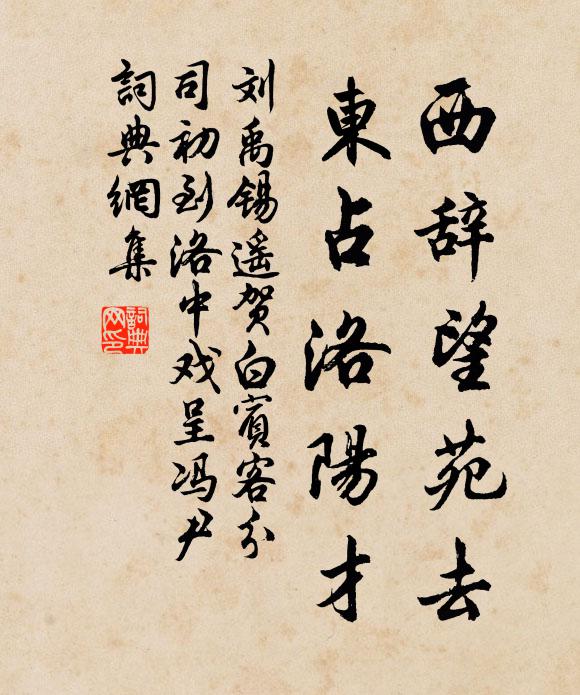 西辞望苑去
東占洛陽才
刘禹锡遥贺白賓客分
司初到洛中戏呈冯尹
詞典網集
詞典网印